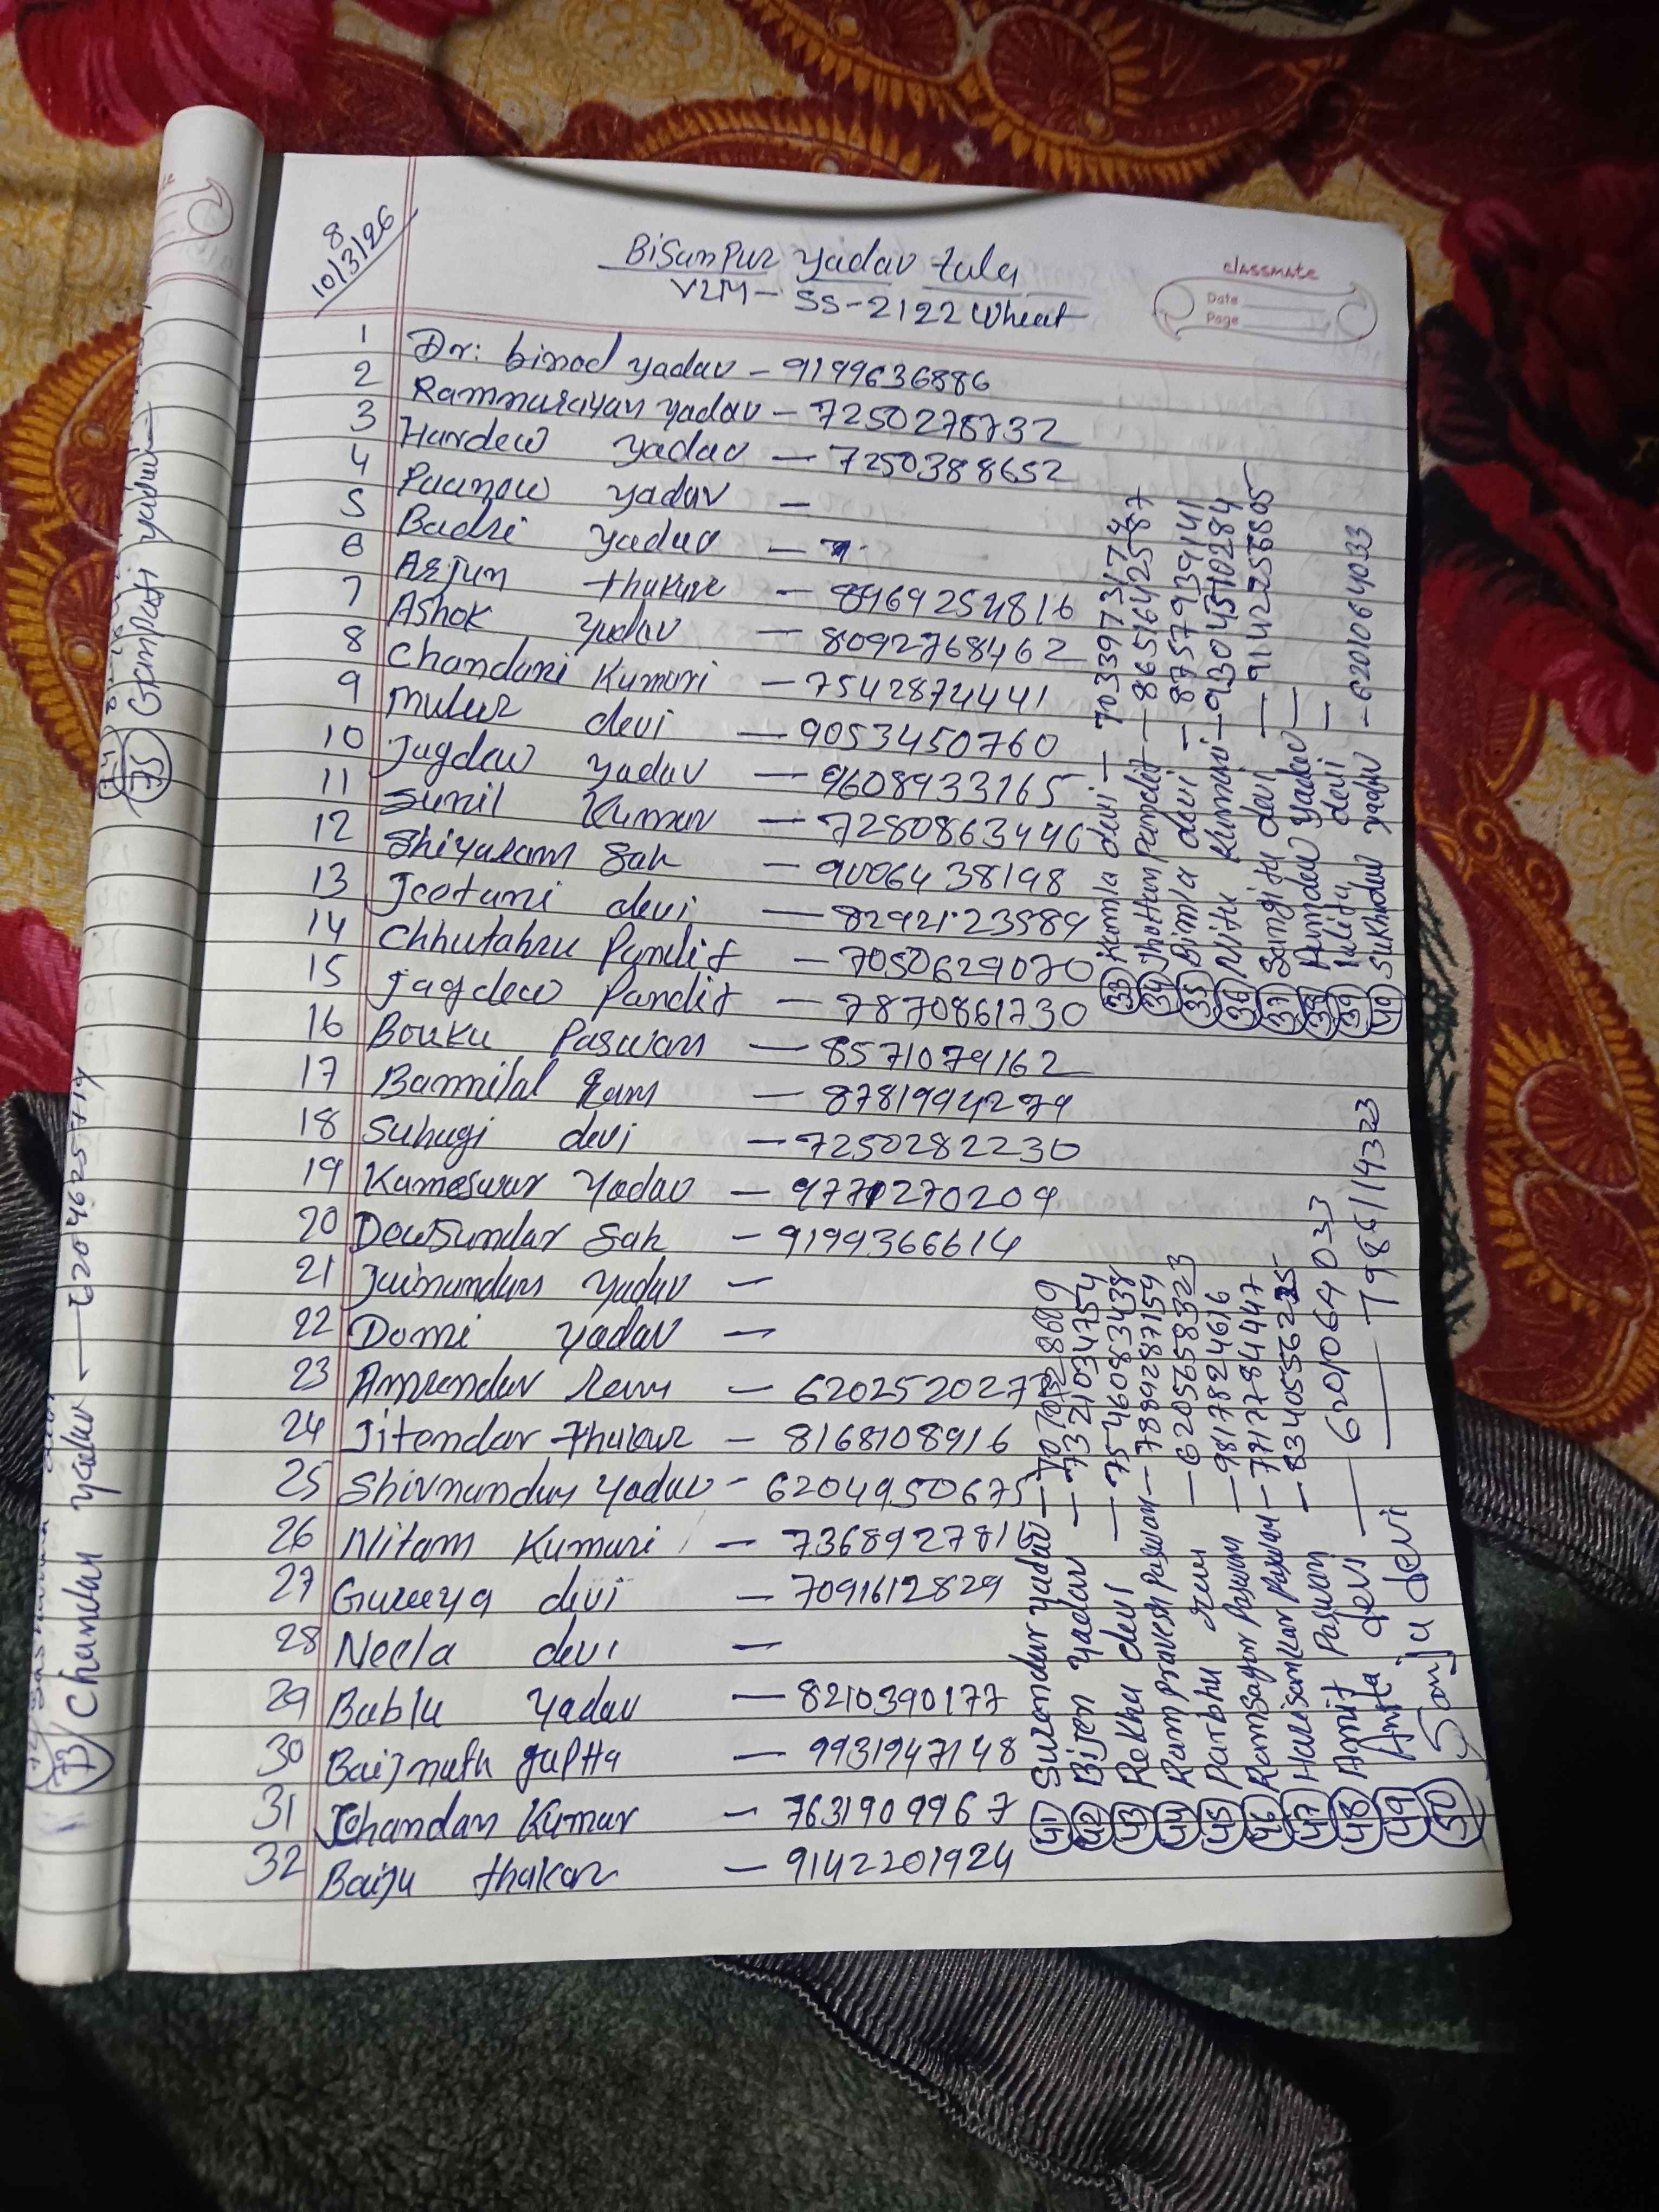 8
10/3/26
Bisanpur Yadav tola
V2M - SS-2122 Wheat
classmate
Date
Page
1 Dr: binod yadav - 9199636886
2 Ramnarayan yadav - 7250278732
3 Hardew yadav - 7250388652
4 yadav -
5 Badri yadav -
6 Arjun thakur - 8969254816
7 Ashok yadav - 8092768462
8 Chandani Kumari - 7542874441
9 devi - 9053450760
10 Jagdew yadav - 9608933265
11 Sunil Kumar - 7280863446
12 Shiyaram Sah - 9006438198
13 devi - 8292123589
14 Pandit - 7050629070
15 Jagdew Pandit - 7870861730
16 Paswan - 8571079162
17 Ram - 8781994279
18 Suhagi devi - 7250282230
19 Kameswar Yadav - 9771270209
20 Dewsundar Sah - 9199366614
21 Jainandan yadav -
22 Domi yadav -
23 Amrendar Ram -
24 Jitendar Thakur - 8168108916
25 Shivnandan Yadav - 6204950675
26 Nitam Kumari - 7368927816
27 devi - 7091612829
28 Neela devi -
29 Bablu Yadav - 8210390177
30 Baijnath gupta - 9931947148
31 Chandan Kumar - 7631909967
32 Baiju thakar - 9142201924
33 Kamla devi -
34 Pandit - 8651642587
35 Bimla devi - 8757939141
36 Nitu Kumari -
37 Sangita devi -
38 Ramdew yadav -
39 devi -
40 Sukhdev yadav - 6201064033
41 Surendar yadav -
42 Bijen yadav - 7321034754
43 Rekha devi - 7546083438
44 Rampravesh Paswan - 7889287159
45 Parbhu Ram - 6205658323
46 Ramsagar Paswan - 9817824616
47 Harisankar Paswan -
48 Amit Paswan -
49 Anita devi - 6201064033
50 Sanju devi -
73 Chandan yadav - 6204625719
75 Ganpati yadav